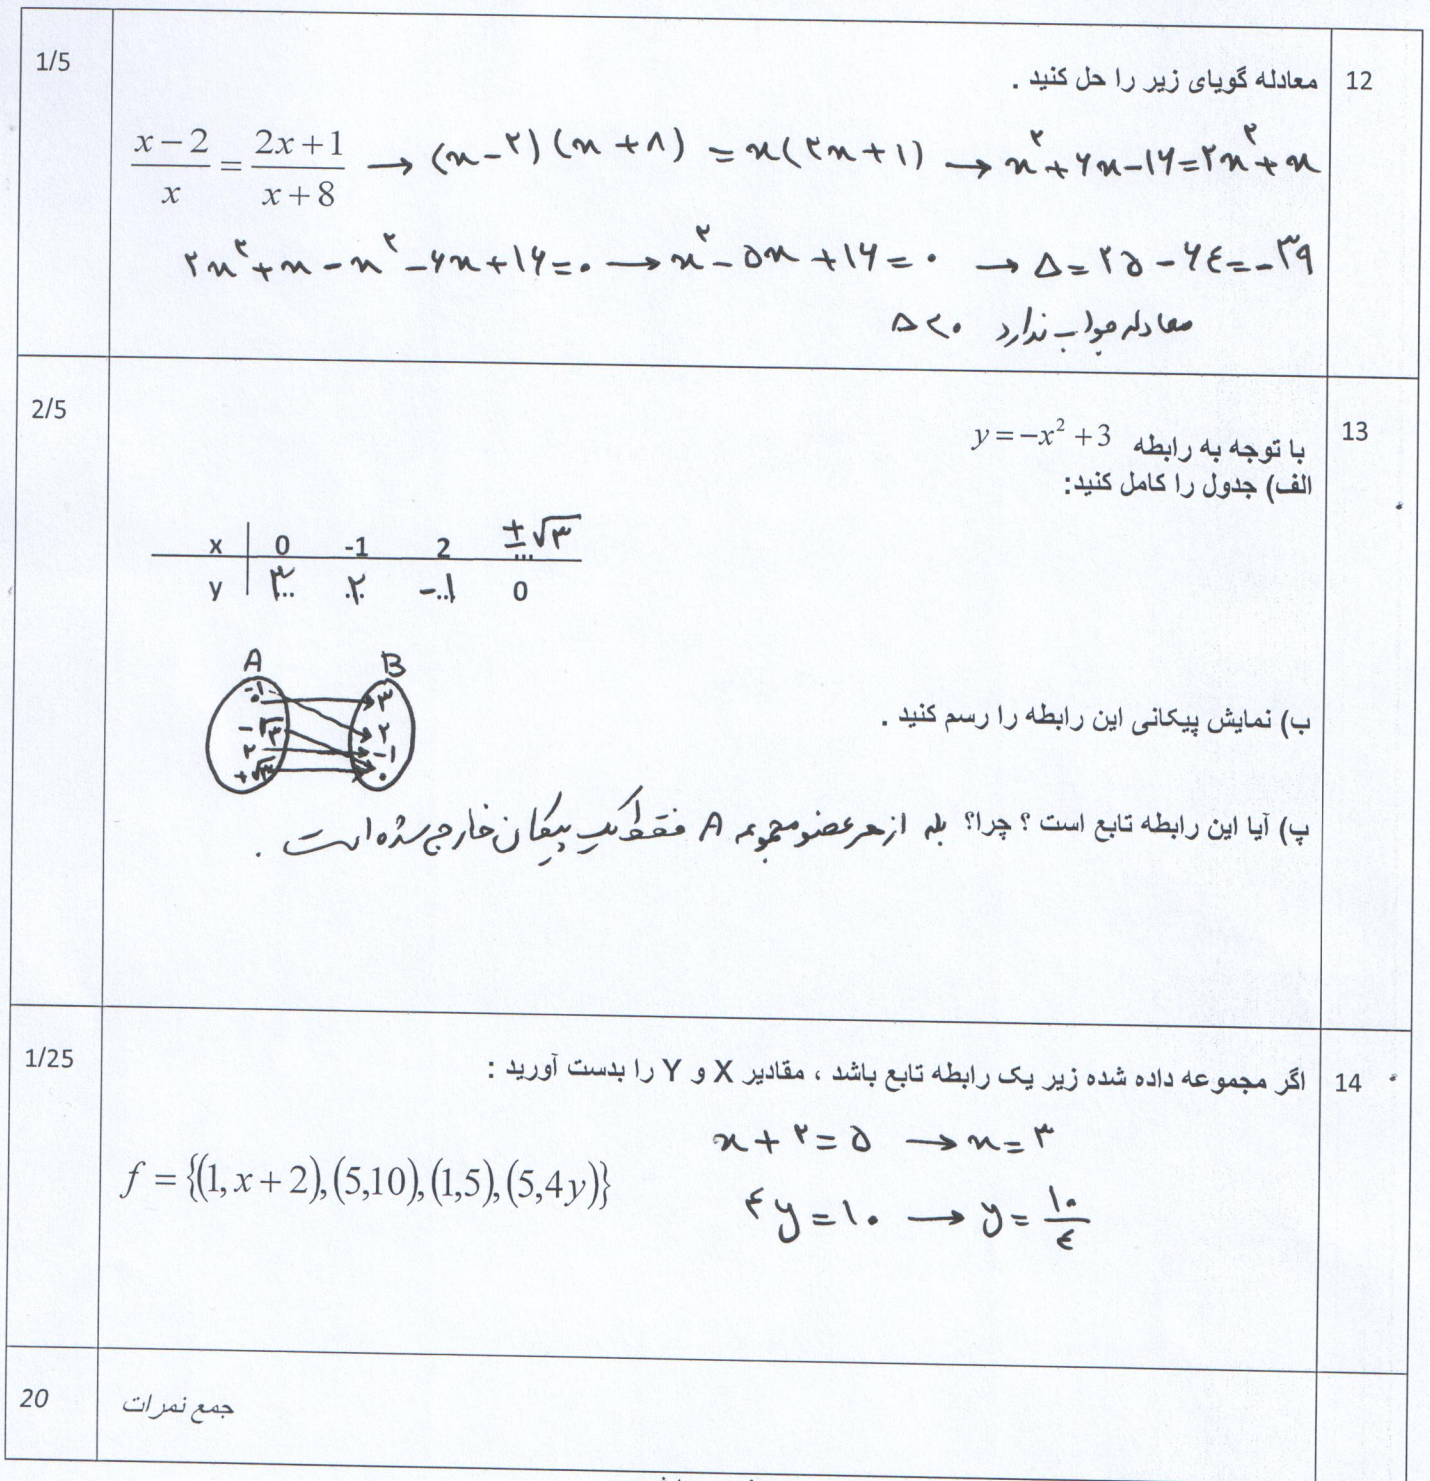 12
معادله گویای زیر را حل کنید .
1/5
(x-2)/x = (2x+1)/(x+8) → (x-۲)(x+۸) = x(۲x+۱) → x^۲+۶x-۱۶=۲x^۲+x
۲x^۲+x-x^۲-۶x+۱۶=۰ → x^۲-۵x+۱۶=۰ → Δ=۲۵-۶۴=-۳۹
Δ<۰ معادله جواب ندارد
13
با توجه به رابطه y=-x²+3
2/5
الف) جدول را کامل کنید:
x 0 -1 2 ±√۳
y ۳ ۲ -۱ 0
ب) نمایش پیکانی این رابطه را رسم کنید .
A B
-۱ ۳
۰ ۲
-√۳ -۱
۲ ۰
+√۳
پ) آیا این رابطه تابع است ؟ چرا؟ بله از هر عضو مجموعه A فقط یک پیکان خارج شده است .
14
اگر مجموعه داده شده زیر یک رابطه تابع باشد ، مقادیر X و Y را بدست آورید :
1/25
x+۲=۵ → x=۳
f = {(1,x+2),(5,10),(1,5),(5,4y)}
۴y=۱۰ → y=۱۰/۴
جمع نمرات
20